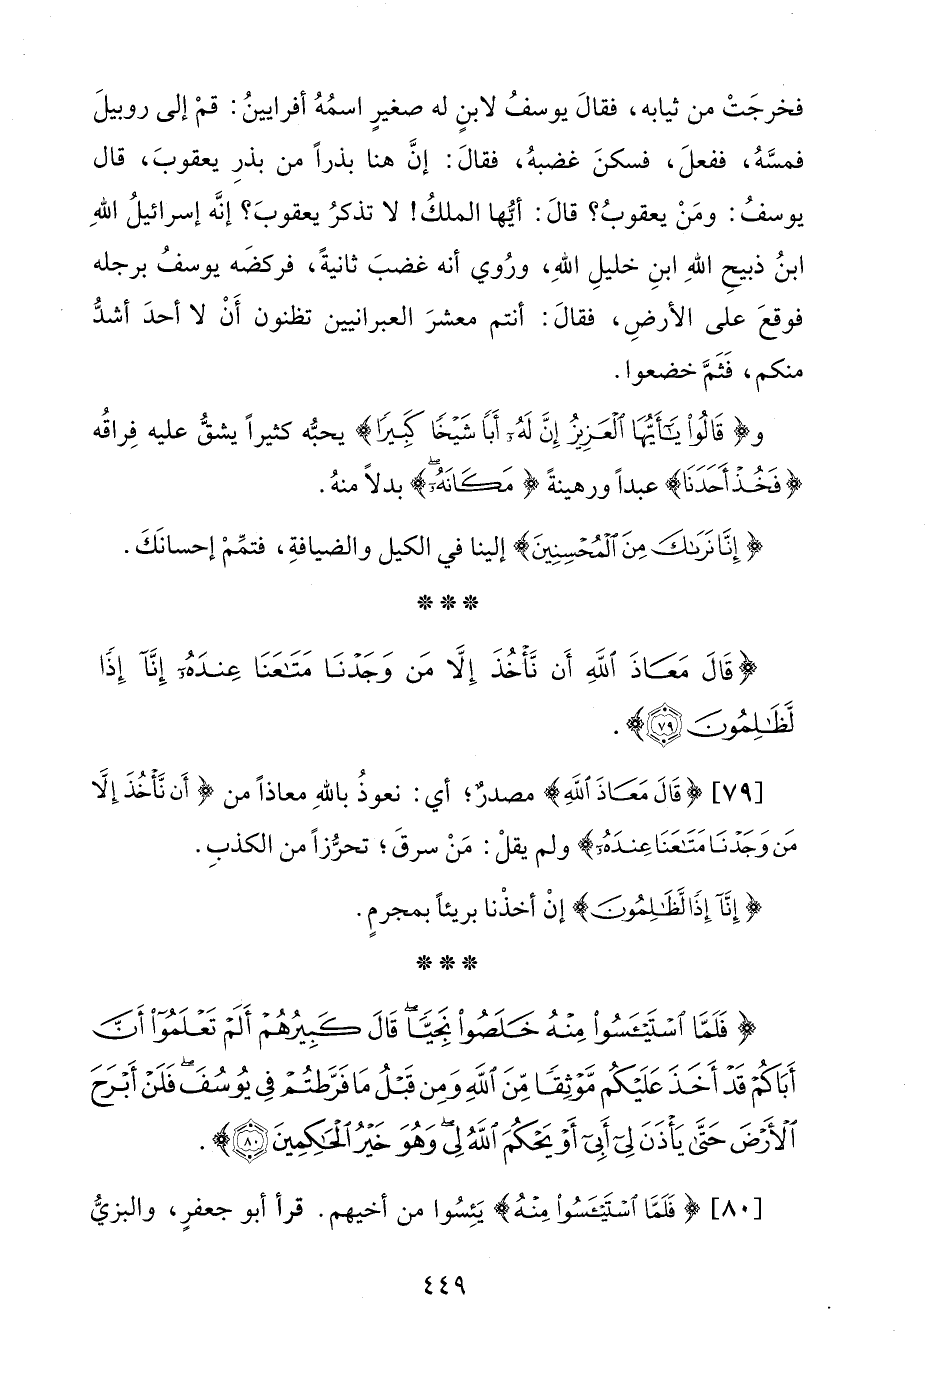 فخرجَتْ من ثيابه، فقالَ يوسفُ لابنٍ له صغيرٍ اسمُهُ أفرايينُ: قمْ إلى روبيلَ
فمسَّهُ، ففعلَ، فسكنَ غضبهُ، فقالَ: إنَّ هنا بذراً من بذرِ يعقوبَ، قال
يوسفُ: ومَنْ يعقوبُ؟ قالَ: أيُّها الملكُ! لا تذكرُ يعقوبَ؟ إنَّه إسرائيلُ اللهِ
ابنُ ذبيحِ اللهِ ابنِ خليلِ اللهِ، ورُوي أنه غضبَ ثانيةً، فركضَه يوسفُ برجله
فوقعَ على الأرضِ، فقالَ: أنتم معشرَ العبرانيين تظنون أَنْ لا أحدَ أشدُّ
منكم، فَثَمَّ خضعوا.
و﴿ قَالُواْ يَٰٓأَيُّهَا ٱلۡعَزِيزُ إِنَّ لَهُۥٓ أَبٗا شَيۡخٗا كَبِيرٗا﴾ يحبُّه كثيراً يشقُّ عليه فِراقُه
﴿ فَخُذۡ أَحَدَنَا﴾ عبداً ورهينةً ﴿ مَكَانَهُۥٓۖ﴾ بدلاً منهُ.
﴿ إِنَّا نَرَىٰكَ مِنَ ٱلۡمُحۡسِنِينَ﴾ إلينا في الكيل والضيافةِ، فتمِّمْ إحسانَكَ.
* * *
﴿ قَالَ مَعَاذَ ٱللَّهِ أَن نَّأۡخُذَ إِلَّا مَن وَجَدۡنَا مَتَٰعَنَا عِندَهُۥٓ إِنَّآ إِذٗا
لَّظَٰلِمُونَ ٧٩﴾.
[٧٩] ﴿ قَالَ مَعَاذَ ٱللَّهِ﴾ مصدرٌ؛ أي: نعوذُ باللهِ معاذاً من ﴿ أَن نَّأۡخُذَ إِلَّا
مَن وَجَدۡنَا مَتَٰعَنَا عِندَهُۥٓ﴾ ولم يقلْ: مَنْ سرقَ؛ تحرُّزاً من الكذبِ.
﴿ إِنَّآ إِذٗا لَّظَٰلِمُونَ﴾ إنْ أخذْنا بريئاً بمجرمٍ.
* * *
﴿ فَلَمَّا ٱسۡتَيۡـَٔسُواْ مِنۡهُ خَلَصُواْ نَجِيّٗاۖ قَالَ كَبِيرُهُمۡ أَلَمۡ تَعۡلَمُوٓاْ أَنَّ
أَبَاكُمۡ قَدۡ أَخَذَ عَلَيۡكُم مَّوۡثِقٗا مِّنَ ٱللَّهِ وَمِن قَبۡلُ مَا فَرَّطتُمۡ فِي يُوسُفَۖ فَلَنۡ أَبۡرَحَ
ٱلۡأَرۡضَ حَتَّىٰ يَأۡذَنَ لِيٓ أَبِيٓ أَوۡ يَحۡكُمَ ٱللَّهُ لِيۖ وَهُوَ خَيۡرُ ٱلۡحَٰكِمِينَ ٨٠﴾.
[٨٠] ﴿ فَلَمَّا ٱسۡتَيۡـَٔسُواْ مِنۡهُ﴾ يَئِسُوا من أخيهم. قرأ أبو جعفرٍ، والبزيُّ
٤٤٩